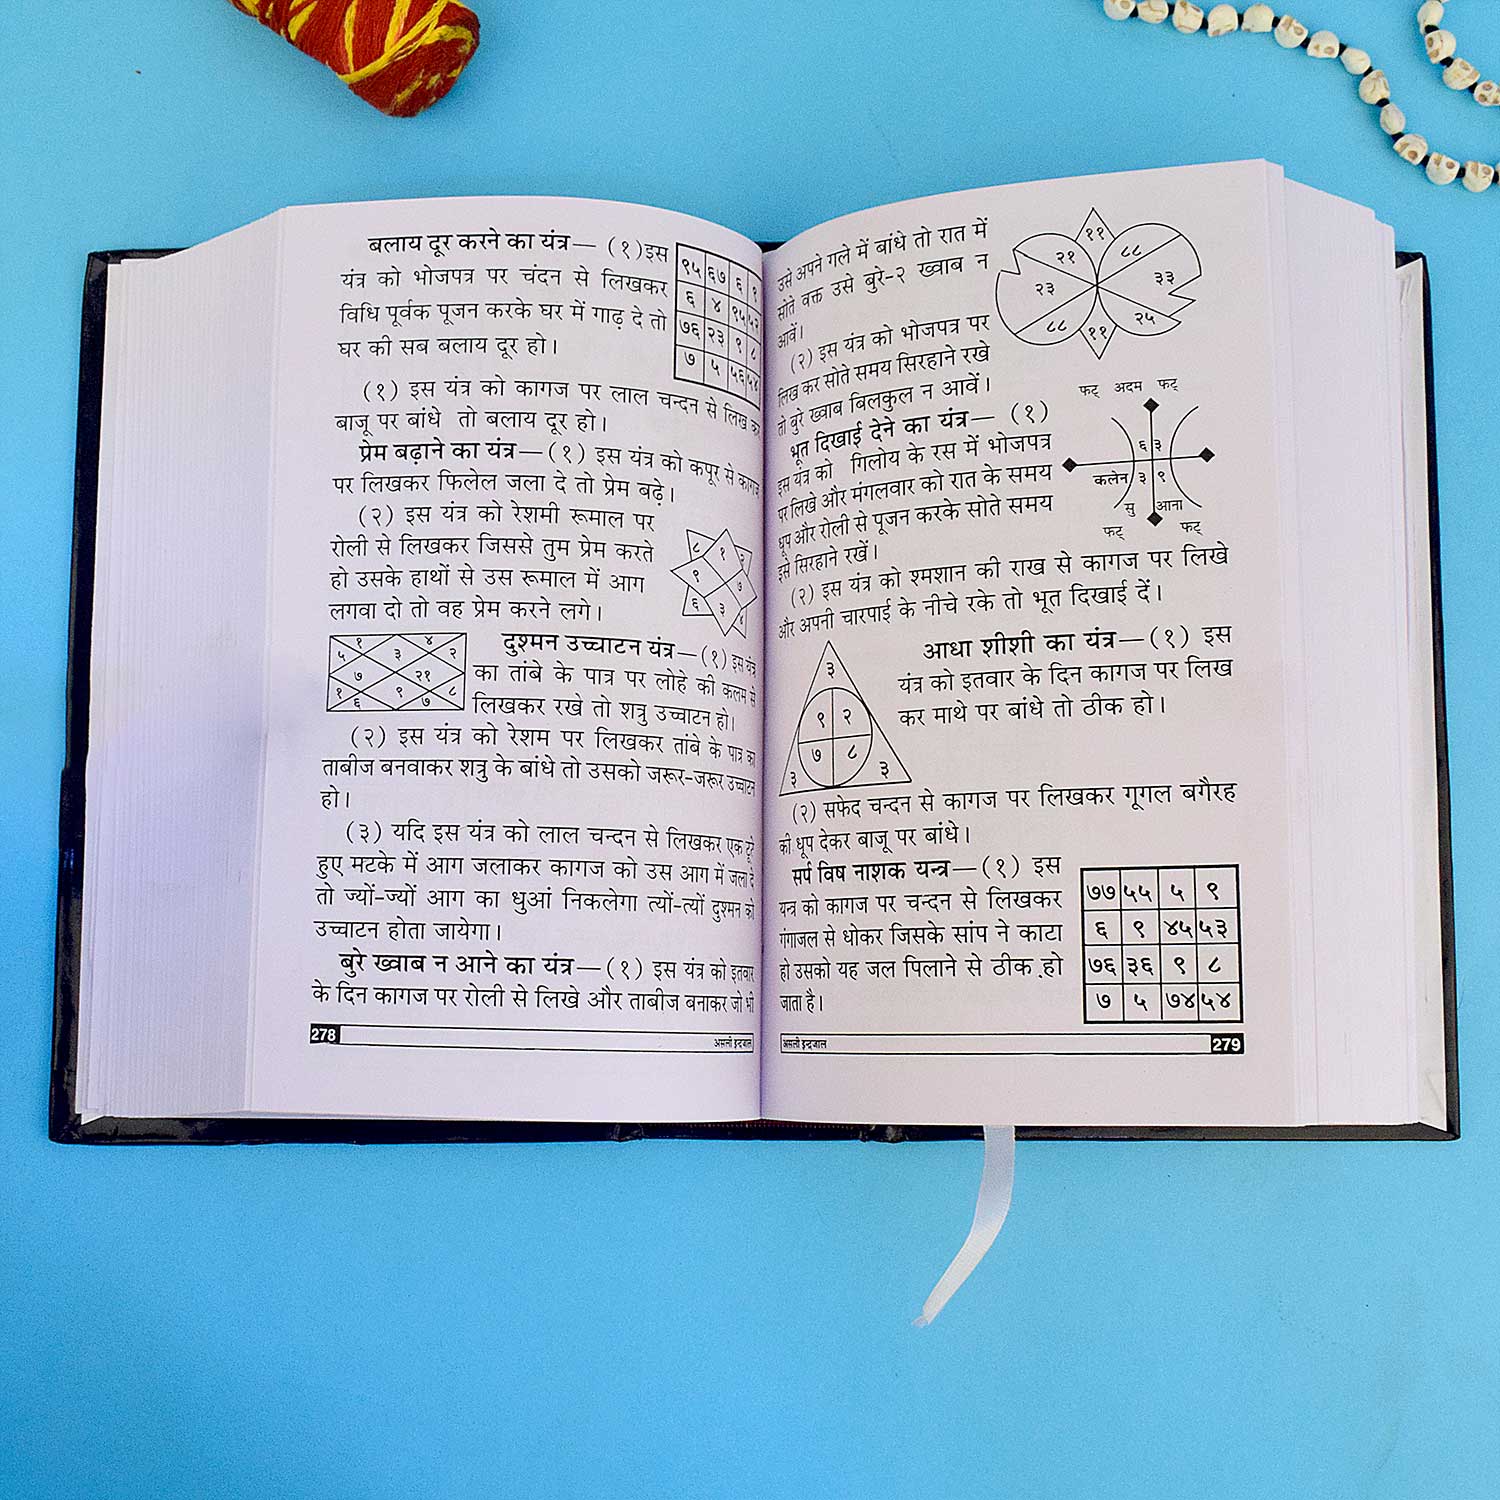 बलाय दूर करने का यंत्र— (१)इस
यंत्र को भोजपत्र पर चंदन से लिखकर
विधि पूर्वक पूजन करके घर में गाढ़ दे तो
घर की सब बलाय दूर हो।
९५ ६७ ६ ९
६ ४ ९५ ५२
७६ २३ ९ ८
७ ५ ५६ ५४
(१) इस यंत्र को कागज पर लाल चन्दन से लिख कर
बाजू पर बांधे तो बलाय दूर हो।
प्रेम बढ़ाने का यंत्र—(१) इस यंत्र को कपूर से कागज
पर लिखकर फिलेल जला दे तो प्रेम बढ़े।
(२) इस यंत्र को रेशमी रूमाल पर
रोली से लिखकर जिससे तुम प्रेम करते
हो उसके हाथों से उस रूमाल में आग
लगवा दो तो वह प्रेम करने लगे।
८ १ ३
९ ७
६ ३ ४
१ ४
५ ३ २
७ २१
१ ९ ८
६ ७
दुश्मन उच्चाटन यंत्र—(१) इस यंत्र
का तांबे के पात्र पर लोहे की कलम से
लिखकर रखे तो शत्रु उच्चाटन हो।
(२) इस यंत्र को रेशम पर लिखकर तांबे के पात्र का
ताबीज बनवाकर शत्रु के बांधे तो उसको जरूर-जरूर उच्चाटन
हो।
(३) यदि इस यंत्र को लाल चन्दन से लिखकर एक टूटे
हुए मटके में आग जलाकर कागज को उस आग में जला दे
तो ज्यों-ज्यों आग का धुआं निकलेगा त्यों-त्यों दुश्मन को
उच्चाटन होता जायेगा।
बुरे ख्वाब न आने का यंत्र—(१) इस यंत्र को इतवार
के दिन कागज पर रोली से लिखे और ताबीज बनाकर जो भी
278
असली इन्द्रजाल
उसे अपने गले में बांधे तो रात में
सोते वक्त उसे बुरे-२ ख्वाब न
आवें।
(२) इस यंत्र को भोजपत्र पर
लिख कर सोते समय सिरहाने रखे
तो बुरे ख्वाब बिलकुल न आवें।
११
२१ ८८
२३ ३३
८८ २५
११
भूत दिखाई देने का यंत्र— (१)
इस यंत्र को गिलोय के रस में भोजपत्र
पर लिखे और मंगलवार को रात के समय
धूप और रोली से पूजन करके सोते समय
इसे सिरहाने रखें।
फट् अदम फट्
६ ३
कलेन ३ ९
सु आना
फट् फट्
(२) इस यंत्र को श्मशान की राख से कागज पर लिखे
और अपनी चारपाई के नीचे रके तो भूत दिखाई दें।
३
९ २
७ ८
३ ३
आधा शीशी का यंत्र—(१) इस
यंत्र को इतवार के दिन कागज पर लिख
कर माथे पर बांधे तो ठीक हो।
(२) सफेद चन्दन से कागज पर लिखकर गूगल बगैरह
की धूप देकर बाजू पर बांधे।
सर्प विष नाशक यन्त्र—(१) इस
यन्त्र को कागज पर चन्दन से लिखकर
गंगाजल से धोकर जिसके सांप ने काटा
हो उसको यह जल पिलाने से ठीक हो
जाता है।
७७ ५५ ५ ९
६ ९ ४५ ५३
७६ ३६ ९ ८
७ ५ ७४ ५४
असली इन्द्रजाल
279